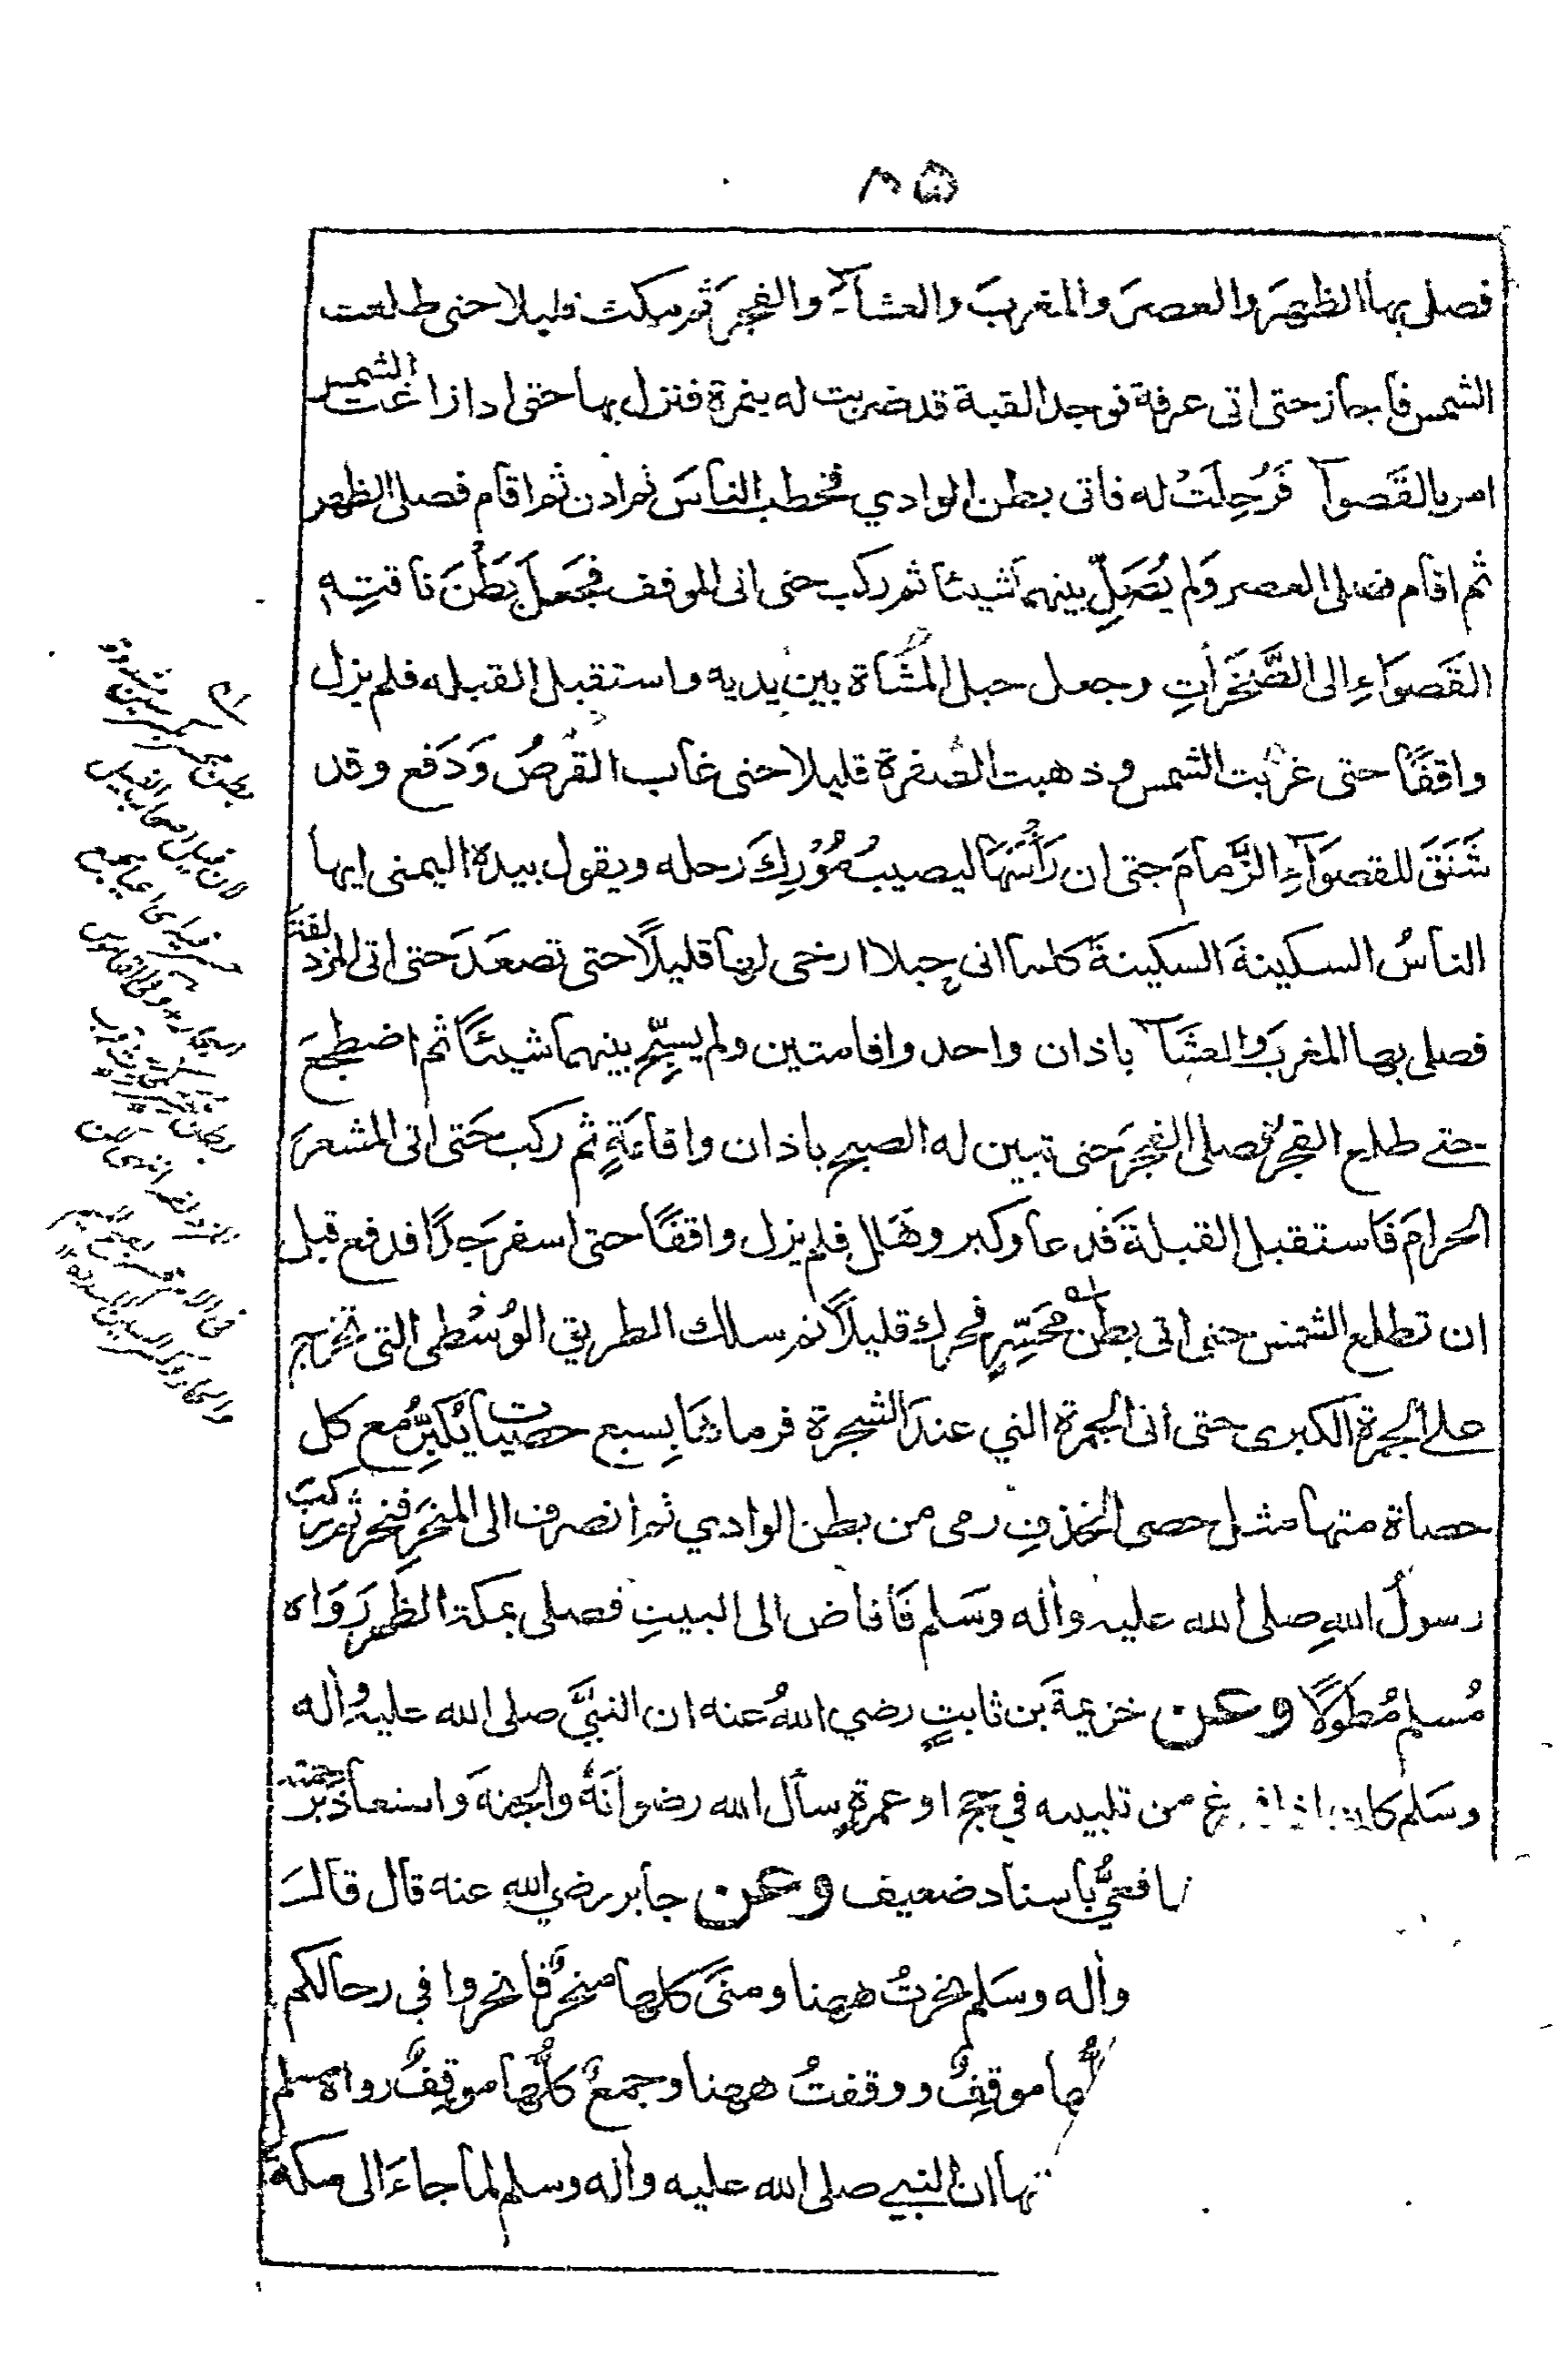 ٨٥
فصلى بها الظهرَ والعصرَ والمغربَ والعشآءَ والفجرَ ثم مكث قليلا حتى طلعت
الشمس فأجاز حتى اتى عرفة فوجد القبة قد ضربت له بنمرة فنزل بها حتى اذا زاغت الشمس
امر بالقَصوآ فَرُحِلَتْ له فاتى بطن الوادي فخطب الناسَ ثم اذن ثم اقام فصلى الظهر
ثم اقام فصلى العصر وَلم يُصَلِّ بينهما شيئا ثم ركب حتى اتى الموقف فجَعلَ بَطْنَ ناقتِه
القَصوَاءِ الى الصَّخَرَاتِ وجعل حبل المشَاة بين يديه واستقبل القبله فلم يزل
واقفًا حتى غربت الشمس وذهبت الصفرة قليلا حتى غاب القرصُ وَدَفع وقد
شَنَقَ للقصوَآءِ الزَّمامَ حتى ان رَأْسَهَا ليصيبُ مُوْرِكَ رحله ويقول بيده اليمنى ايها
الناسُ السكينةَ السكينةَ كلما اتى حبلا ارخى لها قليلًا حتى تصعَدَ حتى اتى المزدلفة
فصلى بها المغربَ والعشَآ باذان واحد واقامتين ولم يسبِّح بينهما شيئًا ثم اضطجعَ
حتى طلع الفجرُ فصلى الفجرَ حتى تبين له الصبح باذان واقامَةٍ ثم ركب حَتى اتى المشعرَ
الحرامَ فَاستقبل القبلةَ فدعا وكبر وهَلل فلم يزل واقفًا حتى اسفر جدًا فدفع قبل
ان تطلع الشمس حتى اتى بطن محَسِّرٍ فحرك قليلًا ثم سلك الطريق الوُسْطى التى تخرج
على الجمرة الكبرى حتى أتى الجمرة التي عندَ الشجرة فرماهَا بِسبع حصيات يُكَبِّرُ مع كل
حصاة منها مثل حصى الخذفِ رمى من بطن الوادي ثم انصرف الى المنحَرِ فنحر ثم ركب
رسولُ اللهِ صلى الله عليه واٰله وسَلم فَافاض الى البيتِ فصلى بمكة الظهر رَوَاه
مُسلم مُطَوَّلًا وعن خزيمةَ بن ثابتٍ رضي اللهُ عنه ان النبيَّ صلى الله عليه واٰله
وسَلم كان اذا فرغ من تلبيته في حج او عمرةٍ سأل الله رضوانَهُ والجنةَ واستعاذ برحمته
افعيُّ بأسناد ضعيف وعن جأبر رضي اللهِ عنه قال قالَ
واٰله وسَلم نحرتُ ههنا ومنًى كلها منحرٌ فانحروا في رحالكم
لُّها موقِفٌ ووقفتُ ههنا وجمعٌ كلُّها موقِفٌ رواه مسلم
نها ان النبي صلى الله عليه واٰله وسلم لما جاءَ الى مكةَ